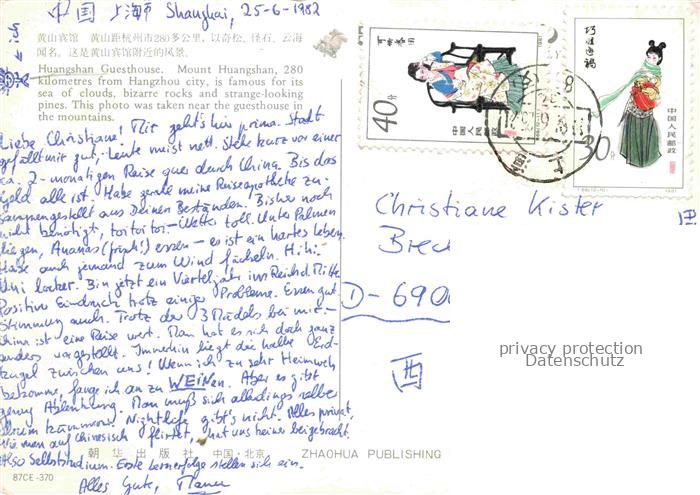 中国 上海市 Shanghai, 25-6-1982
黄山宾馆 黄山距杭州市280多公里，以奇松、怪石、云海
闻名。这是黄山宾馆附近的风景。
Huangshan Guesthouse. Mount Huangshan, 280
kilometres from Hangzhou city, is famous for its
sea of clouds, bizarre rocks and strange-looking
pines. This photo was taken near the guesthouse in
the mountains.
Liebe Christiane! Mir geht's hier prima. Stadt
gefällt mir gut, Leute meist nett. Stehe kurz vor einer
ca. 2-monatigen Reise quer durch China. Bis das
Geld alle ist. Habe gerade meine Reiseapotheke zu-
sammengestellt aus Deinen Beständen. Bisher noch
nicht benötigt, toitoitoi – Wetter toll. Unter Palmen
liegen, Ananas (frisch!) essen – es ist ein hartes Leben.
Habe auch jemand zum Wind fächeln. Hihi.
Uni locker. Bin jetzt ein Vierteljahr im Reich d. Mitte.
Positiver Eindruck trotz einiger Probleme. Essen gut.
Stimmung auch. Trotz der 3 Mädels bei mir –
China ist eine Reise wert. Man hat es sich doch ganz
anders vorgestellt. Immerhin liegt die halbe Erd-
kugel zwischen uns! Wenn ich zu sehr Heimweh
bekomme, fange ich an zu WEINen. Aber es gibt
genug Ablenkung. Man muß sich allerdings selbst
drum kümmern. Nightlife gibt's nicht. Alles privat.
Wie man auf chinesisch flirtet, hat uns keiner beigebracht.
Also Selbststudium. Erste Lernerfolge stellen sich ein.
Alles Gute,
朝华出版社 中国·北京 ZHAOHUA PUBLISHING
87CE-370
40分
中国人民邮政
30分
巧姐
中国人民邮政
1981
Christiane Kister
Brec
D-690
西
privacy protection
Datenschutz